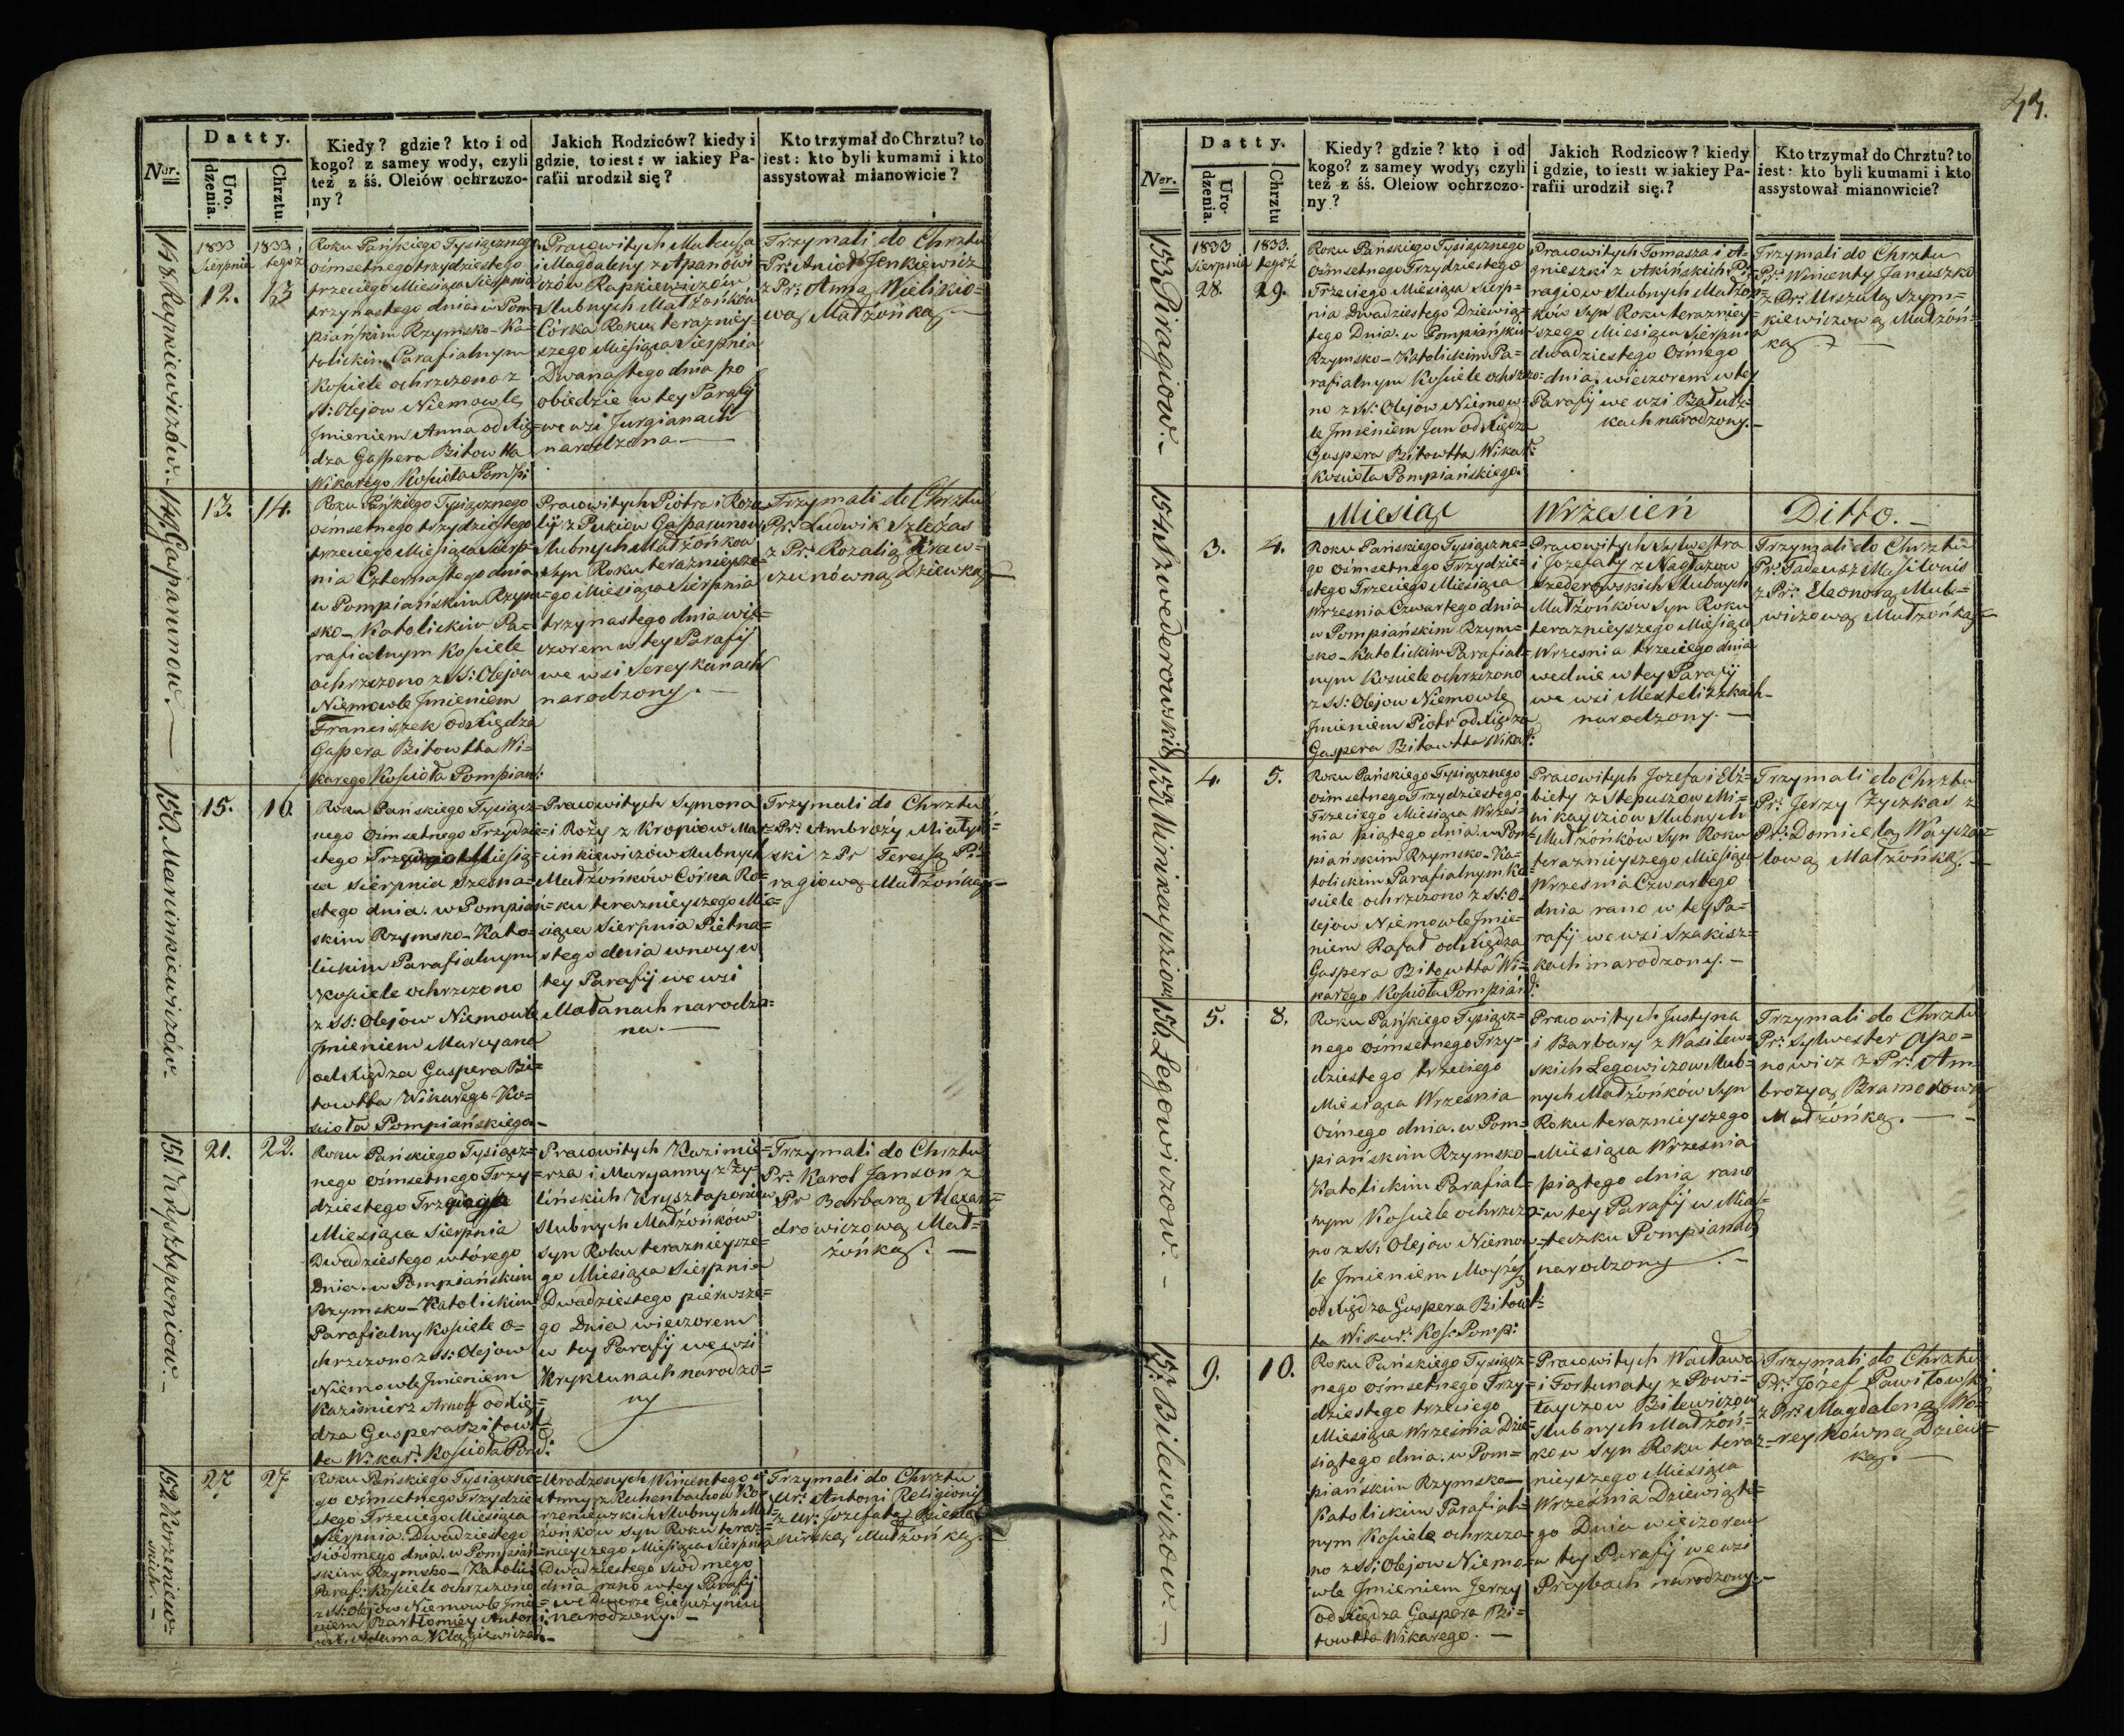 44.
Datty.
Ner.
Uro-
dzenia.
Chrztu.
Kiedy? gdzie? kto i od
kogo? z samey wody, czyli
też z śś. Oleiów ochrzczo-
ny?
Jakich Rodziców? kiedy i
gdzie, to iest: w iakiey Pa-
rafii urodził się?
Kto trzymał do Chrztu? to
iest: kto byli kumami i kto
assystował mianowicie?
148 Rapkiewiczów.-
1833
Sierpnia
12.
1833.
tegoż
13
Roku Pańskiego Tysiącznego
ośmsetnego trzydziestego
trzeciego Miesiąca Sierpnia
trzynastego dnia w Pom=
piańskim Rzymsko-Ka=
tolickim Parafialnym
Kościele ochrzczono z
SS: Olejow Niemowle
Jmieniem Anna od Xię=
dza Gaspera Bitowtta
Wikarego Kościoła Pompi:
Pracowitych Mateusza
i Magdaleny z Apanowi
czów Rapkiewiczów
Slubnych Małżońków
Córka Roku terazniey=
szego Miesiąca Sierpnia
Dwanastego dnia po
obiedzie w tey Parafij
we wsi Jurgianach
narodzona.—
Trzymali do Chrztu
Pr: Anioł Jenkiewicz
z Pr: Anną Wielikio=
wą Małżońką.—
149. Gasparunow.—
13.
14.
Roku Pańskiego Tysiącznego
ośmsetnego trzydziestego
trzeciego Miesiąca Sierp=
nia Czternastego dnia
w Pompiańskim Rzym=
sko-Katolickim Pa=
rafialnym Kościele
ochrzczono z SS: Olejow
Niemowle Jmieniem
Franciszek od Xiędza
Gaspera Bitowtta Wi=
karego Kościoła Pompian:
Pracowitych Piotra i Roza
lij z Pukiow Gasparunow
Slubnych Małżońkow
Syn Roku teraznieysze=
go Miesiąca Sierpnia
trzynastego dnia wie=
czorem w tey Parafij
we wsi Sereykanach
narodzony.—
Trzymali do Chrztu
Pr: Ludwik Szleżas
z Pr: Rozalią Kraw=
czunówną Dziewką—
150. Marcinkiewiczów-
15.
16.
Roku Pańskiego Tysiącz=
nego Ośmsetnego Trzydzie=
stego Trzeciego Miesią=
ca Sierpnia Szesna=
stego dnia. w Pompiań=
skim Rzymsko-Kato=
lickim Parafialnym
Kościele ochrzczono
z SS: Olejow Niemowle
Jmieniem Maryanna
od Xiędza Gaspera Bi=
towtta Wikarego Ko=
scioła Pompiańskiego-
Pracowitych Symona
i Roży z Kropiow Mar=
cinkiewiczów Slubnych
Małżońków Córka Ro=
ku teraznieyszego Mie=
siąca Sierpnia Piętna=
stego dnia w nocy w
tey Parafij we wsi
Matanach narodzo=
na.—
Trzymali do Chrztu
Pr: Ambroży
z Pr Teressą Pi=
ragiową Małżońką.—
151. Krysztaponiow.-
21.
22.
Roku Pańskiego Tysiącz=
nego ośmsetnego Trzy=
dziestego Trzeciego
Miesiąca Sierpnia
Dwudziestego wtórego
Dnia. w Pompiańskim
Rzymsko-Katolickim
Parafialny Kościele o=
chrzczono z SS: Olejow
Niemowle Jmieniem
Kazimierz Arnolf od Xię=
dza Gaspera Bitowt
ta Wikar: Kościoła Pom:
Pracowitych Kazimie=
rza i Maryanny z Zy=
lińskich Krysztaponiow
Slubnych Małżońków
Syn Roku teraznieysze=
go Miesiąca Sierpnia
Dwadziestego pierwsze=
go Dnia wieczorem
w tey Parafij we wsi
Kryklunach narodzo=
ny
Trzymali do Chrztu
Pr: Karol Janson z
Pr Barbarą Alexan=
drowiczową Mał=
żońką.—
152 Korzeniew=
skich.-
27
27
Roku Pańskiego Tysiączne=
go ośmsetnego Trzydzie
stego Trzeciego Miesiąca
Sierpnia Dwadziestego
siódmego dnia. w Pompiań=
skim Rzymsko-Katolic:
Paraf: Kościele ochrzczono
z SS: Olejow Niemowle Jmie=
niem Bartłomiey Antoni
od X. Adama Klągiewicza.-
Urodzonych Wincentego i
Anny z Rechenbachow Ko=
rzeniewskich Slubnych Mał=
żońkow Syn Roku teraz=
nieyszego Miesiąca Sierpnia
Dwadziestego siódmego
dnia rano w tey Parafij
we Dworze Gieguzynie
narodzony.-
Trzymali do Chrztu
Ur: Antoni Religioni
z Ur: Jozefatą
Małżońką.
Datty.
Ner.
Uro-
dzenia.
Chrztu
Kiedy? gdzie? kto i od
kogo? z samey wody, czyli
też z śś. Oleiow ochrzczo-
ny?
Jakich Rodzicow? kiedy
i gdzie, to iest: w iakiey Pa-
rafii urodził się.?
Kto trzymał do Chrztu? to
iest: kto byli kumami i kto
assystował mianowicie?
153 Piragiow.-
1833
Sierpnia
28.
1833.
tegoż
29.
Roku Pańskiego Tysiącznego
Ośmsetnego Trzydziestego
Trzeciego Miesiąca Sierp=
nia Dwadziestego Dziewią=
tego Dnia. w Pompiańskim
Rzymsko-Katolickim Pa=
rafialnym Kościele ochrzczo=
no z SS: Olejow Niemow=
le Jmieniem Jan od Xiędza
Gaspera Bitowtta Wikar:
Kościoła Pompiańskiego.
Pracowitych Tomasza i A=
gnieszki z Akińskich Pi=
ragiow Slubnych Małżoń=
ków Syn Roku teraźniey=
szego Miesiąca Sierpnia
dwadziestego Osmego
dnia, wieczorem w tey
Parafij we wsi Bałudz=
kach narodzony.-
Trzymali do Chrztu
Pr: Wincenty Januszko
z Pr: Urszulą Szym=
kiewiczową Małżoń=
ką.—
Miesiąc Wrzesień Ditto.-
154 Szwederowskich
3.
4.
Roku Pańskiego Tysiączne=
go Ośmsetnego Trzydzie=
stego Trzeciego Miesiąca
Wrzesnia Czwartego dnia
w Pompiańskim Rzym=
sko-Katolickim Parafial=
nym Kosciele ochrzczono
z SS: Olejow Niemowle
Jmieniem Piotr od Xiędza
Gaspera Bitowtta Wikar:
Pracowitych Sylwestra
i Jozefaty z Nagłazow
Szederowskich Slubnych
Małżońków Syn Roku
teraznieyszego Miesiąca
Wrzesnia trzeciego dnia
wednie w tey Parafij
we wsi Mesteliszkach-
narodzony.—
Trzymali do Chrztu
Pr: Tadeusz Masilonis
z Pr: Eleonorą Mub=
wiczową Małżońką=
155 Minikayziow
4.
5.
Roku Pańskiego Tysiącznego
Ośmsetnego Trzydziestego
Trzeciego Miesiąca Wrześ=
nia piątego dnia. w Pom
piańskim Rzymsko-Ka=
tolickim Parafialnym Ko=
sciele ochrzczono z SS: O=
lejow Niemowle Jmie=
niem Rafał od Xiędza
Gaspera Bitowtta Wi=
karego Kościoła Pompiań:
Pracowitych Jozefa i Elż=
biety z Stepuszow Mi=
nikayziow Slubnych
Małżońków Syn Roku
teraznieyszego Miesiąca
Wrzesnia Czwartego
dnia rano w tey Pa=
rafij we wsi Szakisz=
kach narodzony.-
Trzymali do Chrztu
Pr: Jerzy Zyczkas z
Pr: Domicelą Wayszo=
tową Małżońką.-
156. Legowiczow.-
5.
8.
Roku Pańskiego Tysiącz=
nego Ośmsetnego Trzy=
dziestego trzeciego
Miesiąca Wrzesnia
Osmego dnia. w Pom=
piańskim Rzymsko
Katolickim Parafial=
nym Kościele ochrzczo=
no z SS: Olejow Niemow=
le Jmieniem Moyżesz
od Xiędza Gaspera Bitowt=
ta Wikar: Kosc: Pomp:
Pracowitych Justyna
i Barbary z Wasilew=
skich Legowiczow Slub=
nych Małżońków Syn
Roku teraznieyszego
Miesiąca Wrzesnia
piątego dnia rano
w tey Parafij w Mia=
steczku Pompianach
narodzony.-
Trzymali do Chrztu
Pr: Sylwester Apo=
nowicz z Pr: Am=
brozyą Bramorową
Małżońką.—
157. Bilewiczow.—
9.
10.
Roku Pańskiego Tysiącz
nego ośmsetnego Trzy=
dziestego trzeciego
Miesiąca Wrzesnia Dzie=
siątego dnia. w Pom=
piańskim Rzymsko—
Katolickim Parafial=
nym Kościele ochrzczo=
no z SS: Olejow Niemo=
wle Jmieniem Jerzy
od Xiędza Gaspera Bi=
towtta Wikarego.—
Pracowitych Wacława
i Fortunaty z Powi=
łayczow Bilewiczow
Slubnych Małżoń=
kow Syn Roku teraz=
nieyszego Miesiąca
Września Dziewiąte=
go Dnia wieczorem
w tey Parafij we wsi
Przybach narodzony.-
Trzymali do Chrztu
Pr: Józef Pawiłowski
z Pr: Magdaleną Bo=
reykówną Dziew=
ką.—